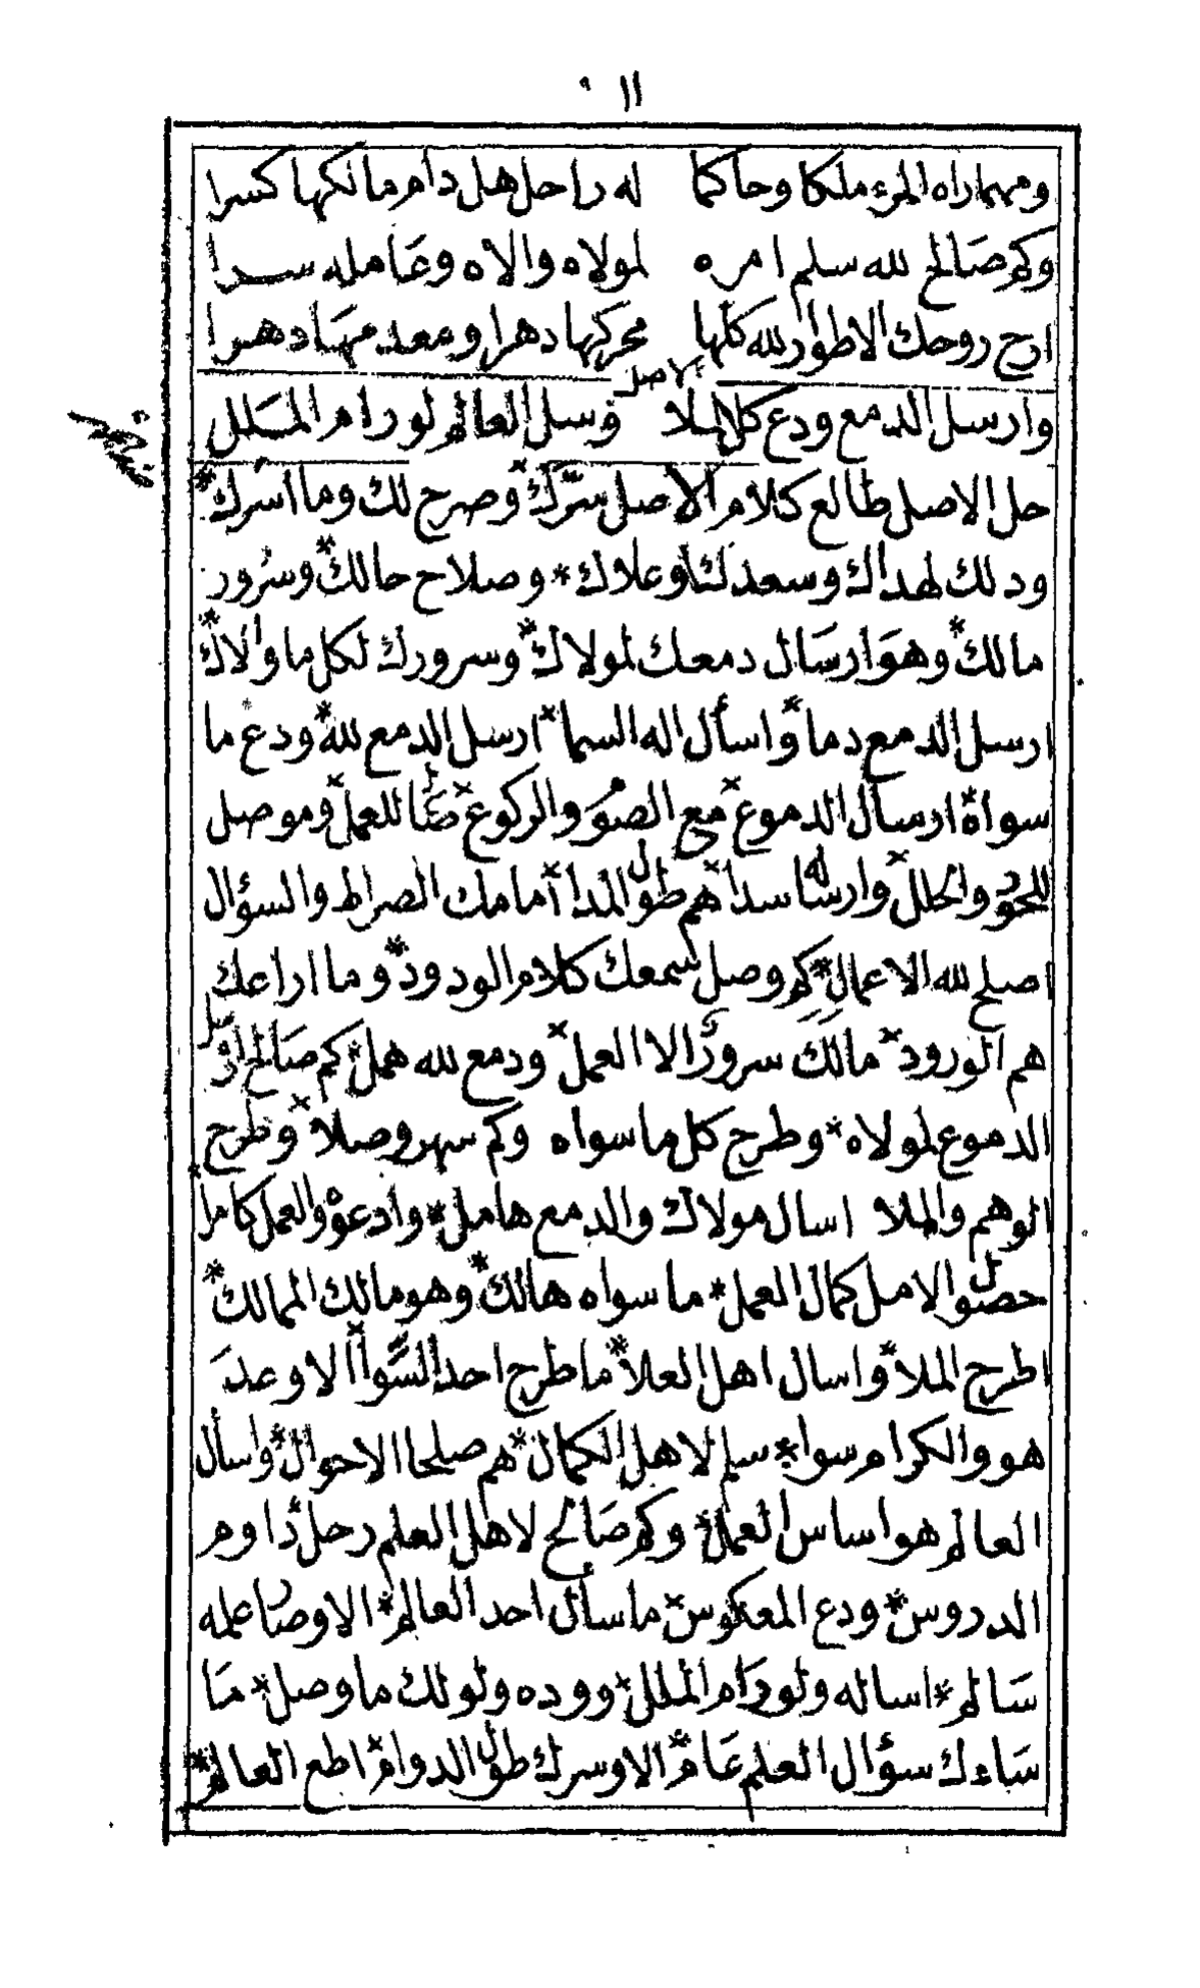 ١١
ومهما راه المرء ملكا وحاكما له راحل هل دام مالكها كسرا
وكم صالح لله سلم امره لمولاه والاه وعامله سرا
ارح روحك الاطوار لله كلها محركها دهرا ومعد مهاد هسرا
الاصل
وارسل الدمع ودع كل الملا وسل العالم لو رام الملل
حل الاصل طالع كلام الاصل سرك وصرح لك وما اسرك
ودلك لهداك وسعدك وعلاك * وصلاح حالك وسرور
مالك * وهو ارسال دمعك لمولاك * وسرورك لكل ما والاك *
ارسل الدمع دما واسأل اله السما * ارسل الدمع لله * ودع ما
سواه * ارسال الدموع مع الصور والركوع * للعمل وموصل
للحور والحلل * وارساله سداهم طول المدا امامك الصراط والسؤال
اصلح لله الاعمال * كم وصل سمعك كلام الودود * وما اراعك
هم الورود * مالك سرور الا العمل * ودمع لله همل * كم صالح ارسل
الدموع لمولاه * وطرح كل ما سواه وكم سهر وصلا * وطرح
الوهم والملا اسال مولاك والدمع هامل * وادعوه والعمل كامل *
حصول الامل كمال العمل * ما سواه هالك * وهو مالك الممالك *
اطرح الملا * واسال اهل العلا * ما طرح احد السؤال الا وعد
هو والكرام سواء * سلم لاهل الكمال * هم صلحا الاحوال * واسأل
العالم هو اساس العمل * وكم صالح لاهل العلم رحل داوم
الدروس * ودع المعكوس * ما سأل احد العالم * الا وصار عمله
سالم * اساله ولو رام الملل * ووده ولو لك ما وصل * ما
ساءك سؤال العلم عام * الا وسرك طول الدوام * اطع العالم *